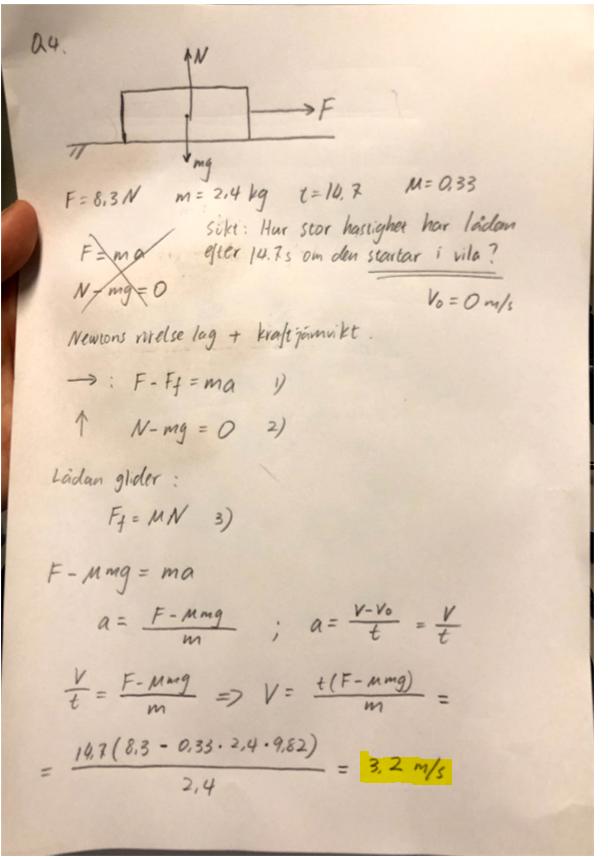 Q4.
N
F
mg
F = 8,3 N m = 2,4 kg t = 14,7 μ = 0,33
Sökt: Hur stor hastighet har lådan
F = ma
efter 14.7s om den startar i vila?
N - mg = 0
V₀ = 0 m/s
Newtons rörelse lag + kraftjämvikt.
→ : F - Ff = ma 1)
↑ N - mg = 0 2)
Lådan glider :
Ff = μN 3)
F - μmg = ma
a = (F - μmg)/m ; a = (V - V₀)/t = V/t
V/t = (F - μmg)/m => V = t(F - μmg)/m =
= 14,7(8,3 - 0,33 · 2,4 · 9,82)/2,4 = 3,2 m/s